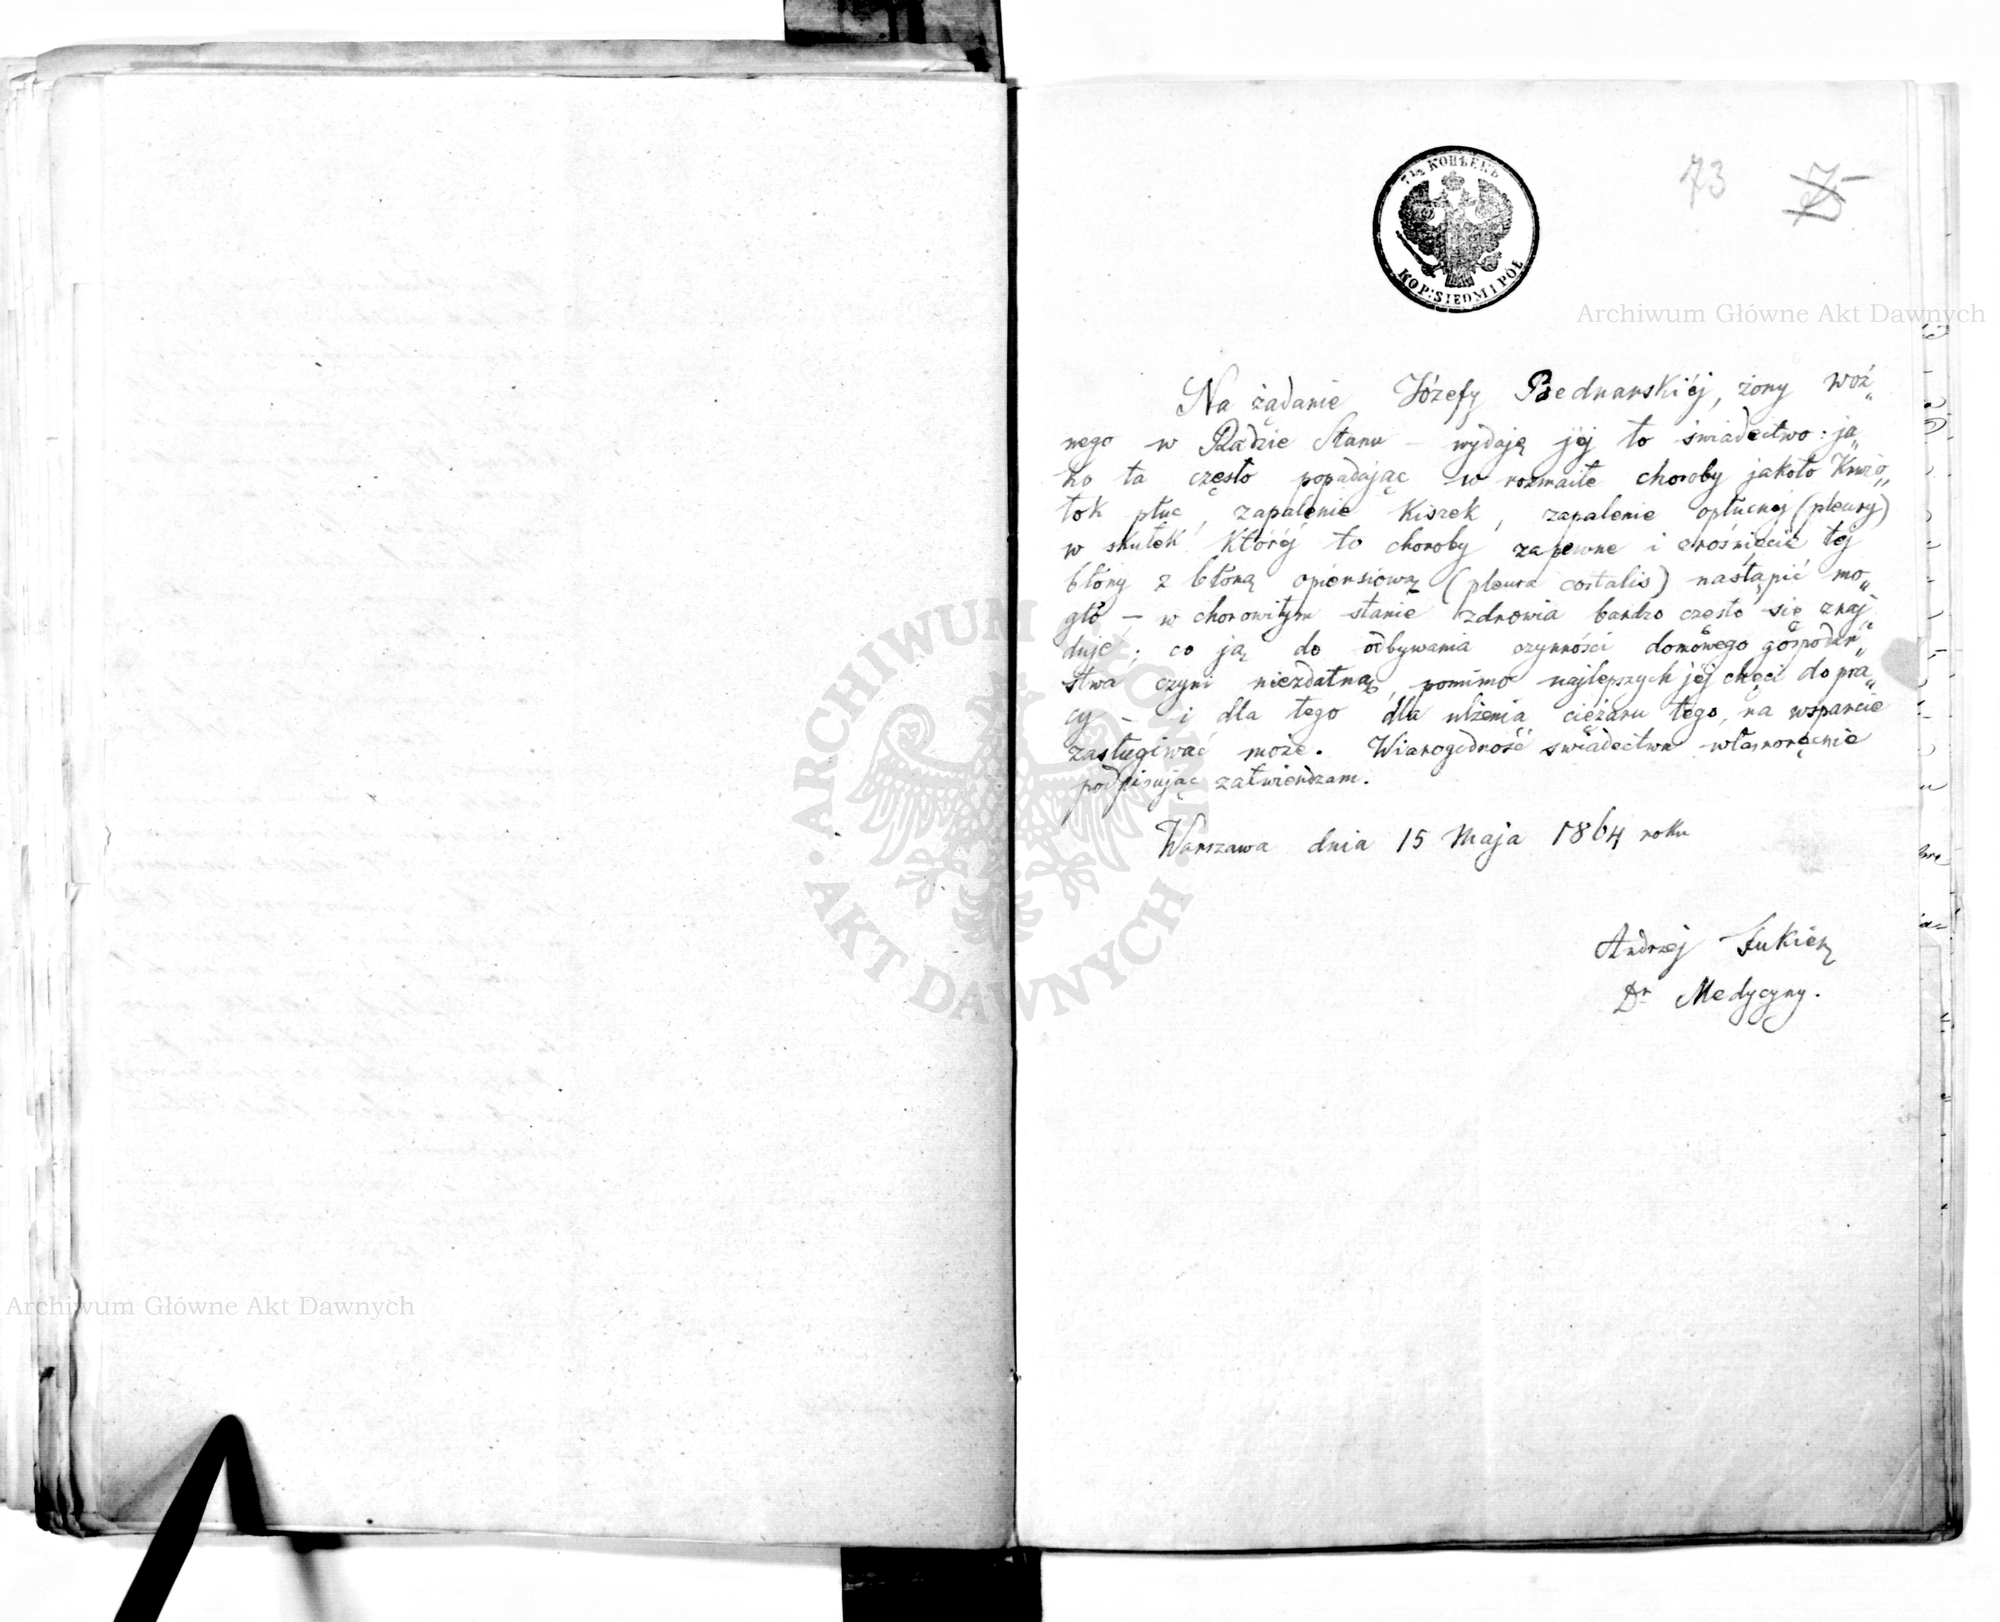 7½ КОПѢЕКЪ
KOP: SIEDM I PÓŁ
73
Archiwum Główne Akt Dawnych
Na żądanie Józefy Bednarskiéj, żony woź„
nego w Radzie Stanu – wydaję jéj to świadectwo: ja„
ko ta często popadając w rozmaite choroby jakoto Krwio„
tok płuc, zapalenie Kiszek, zapalenie opłucnéj (pleury)
w skutek któréj to choroby zapewne i zrośnięcie téj
błóny z błoną opiersiową (pleura costalis) nastąpić mo„
gło – w chorowitym stanie zdrowia bardzo często się znaj„
duje; co ją do odbywania czynności domowego gospodar„
stwa czyni niezdatną, pomimo najlepszych jéj chęci do pra„
cy – i dla tego dla ulżenia ciężaru tego, na wsparcie
zasługiwać może. Wiarogodność świadectwa własnoręcznie
podpisując zatwierdzam.
Warszawa dnia 15 Maja 1864 roku
Andrzej
Dr Medycyny.
ARCHIWUM GŁÓWNE AKT DAWNYCH
Archiwum Główne Akt Dawnych